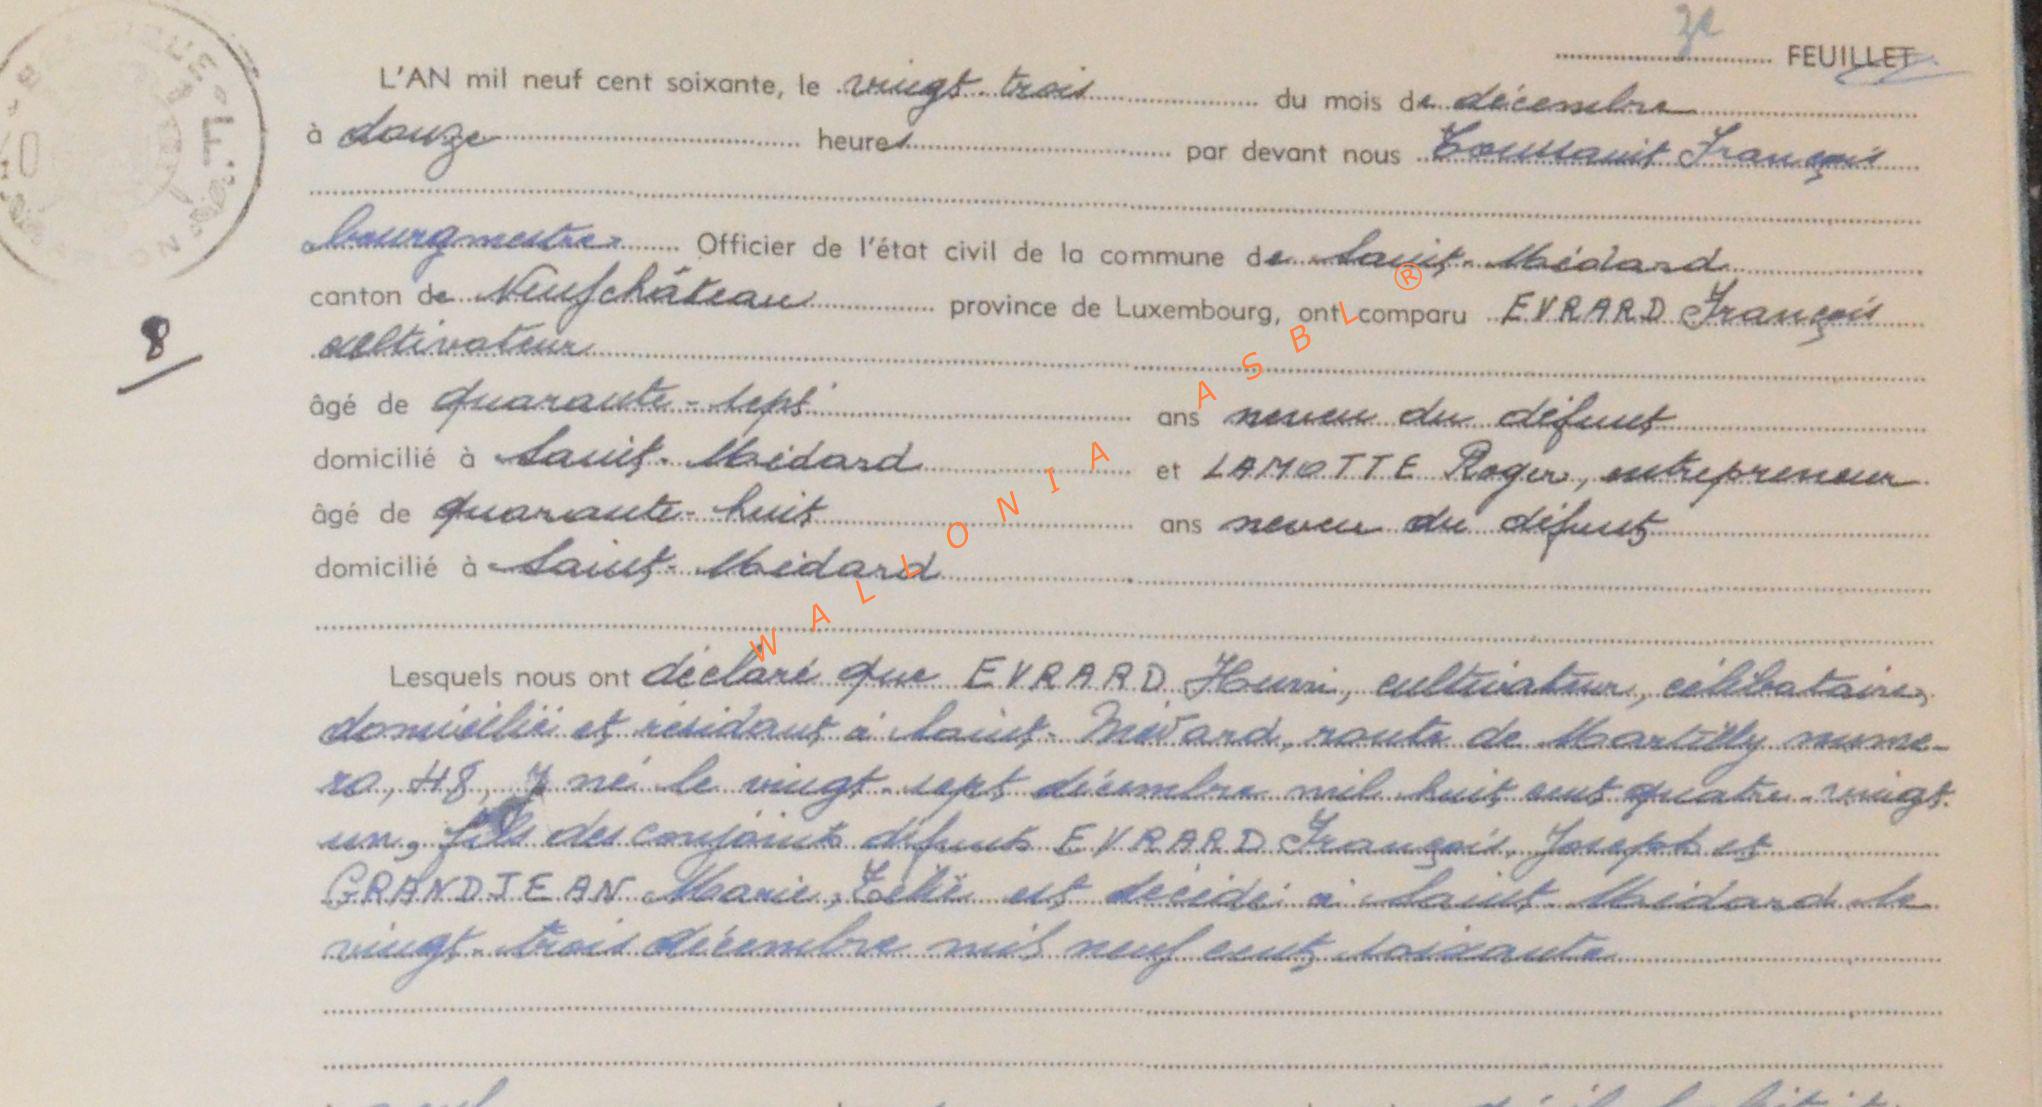 3e FEUILLET
L'AN mil neuf cent soixante, le vingt-trois du mois de décembre
à douze heures par devant nous Toussaint François
bourgmestre Officier de l'état civil de la commune de Saint-Médard
canton de Neufchâteau province de Luxembourg, ont comparu EVRARD François
cultivateur
8
âgé de quarante-sept ans neveu du défunt
domicilié à Saint-Médard et LAMOTTE Roger, entrepreneur
âgé de quarante-huit ans neveu du défunt
domicilié à Saint-Médard
WALLONIA ASBL®
Lesquels nous ont déclaré que EVRARD Henri, cultivateur, célibataire,
domicilié et résidant à Saint-Médard, route de Martilly numé-
ro, 48, né le vingt-sept décembre mil huit cent quatre-vingt
un, fils des conjoints défunts EVRARD François, Joseph et
GRANDJEAN Marie, est décédé à Saint-Médard le
vingt-trois décembre mil neuf cent soixante